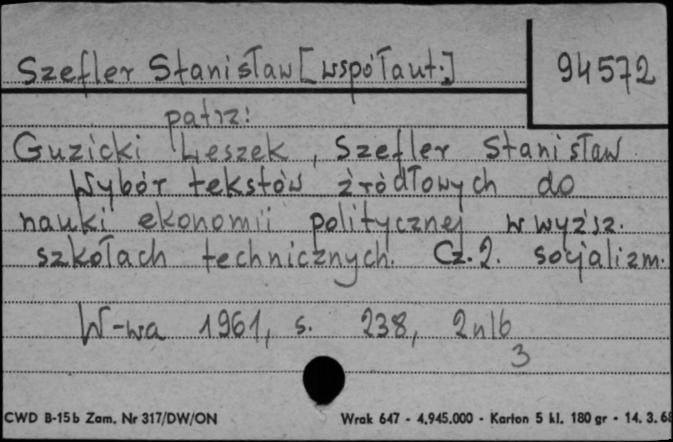 Szefler Stanisław [współaut.]
94572
patrz:
Guzicki Leszek, Szefler Stanisław
Wybór tekstów źródłowych do
nauki ekonomii politycznej w wyższ.
szkołach technicznych. Cz. 2. socjalizm.
W-wa 1961, s. 238, 2nlb
3
CWD B-15b Zam. Nr 317/DW/ON
Wrak 647 - 4,945.000 - Karton 5 kl. 180 gr - 14. 3. 68